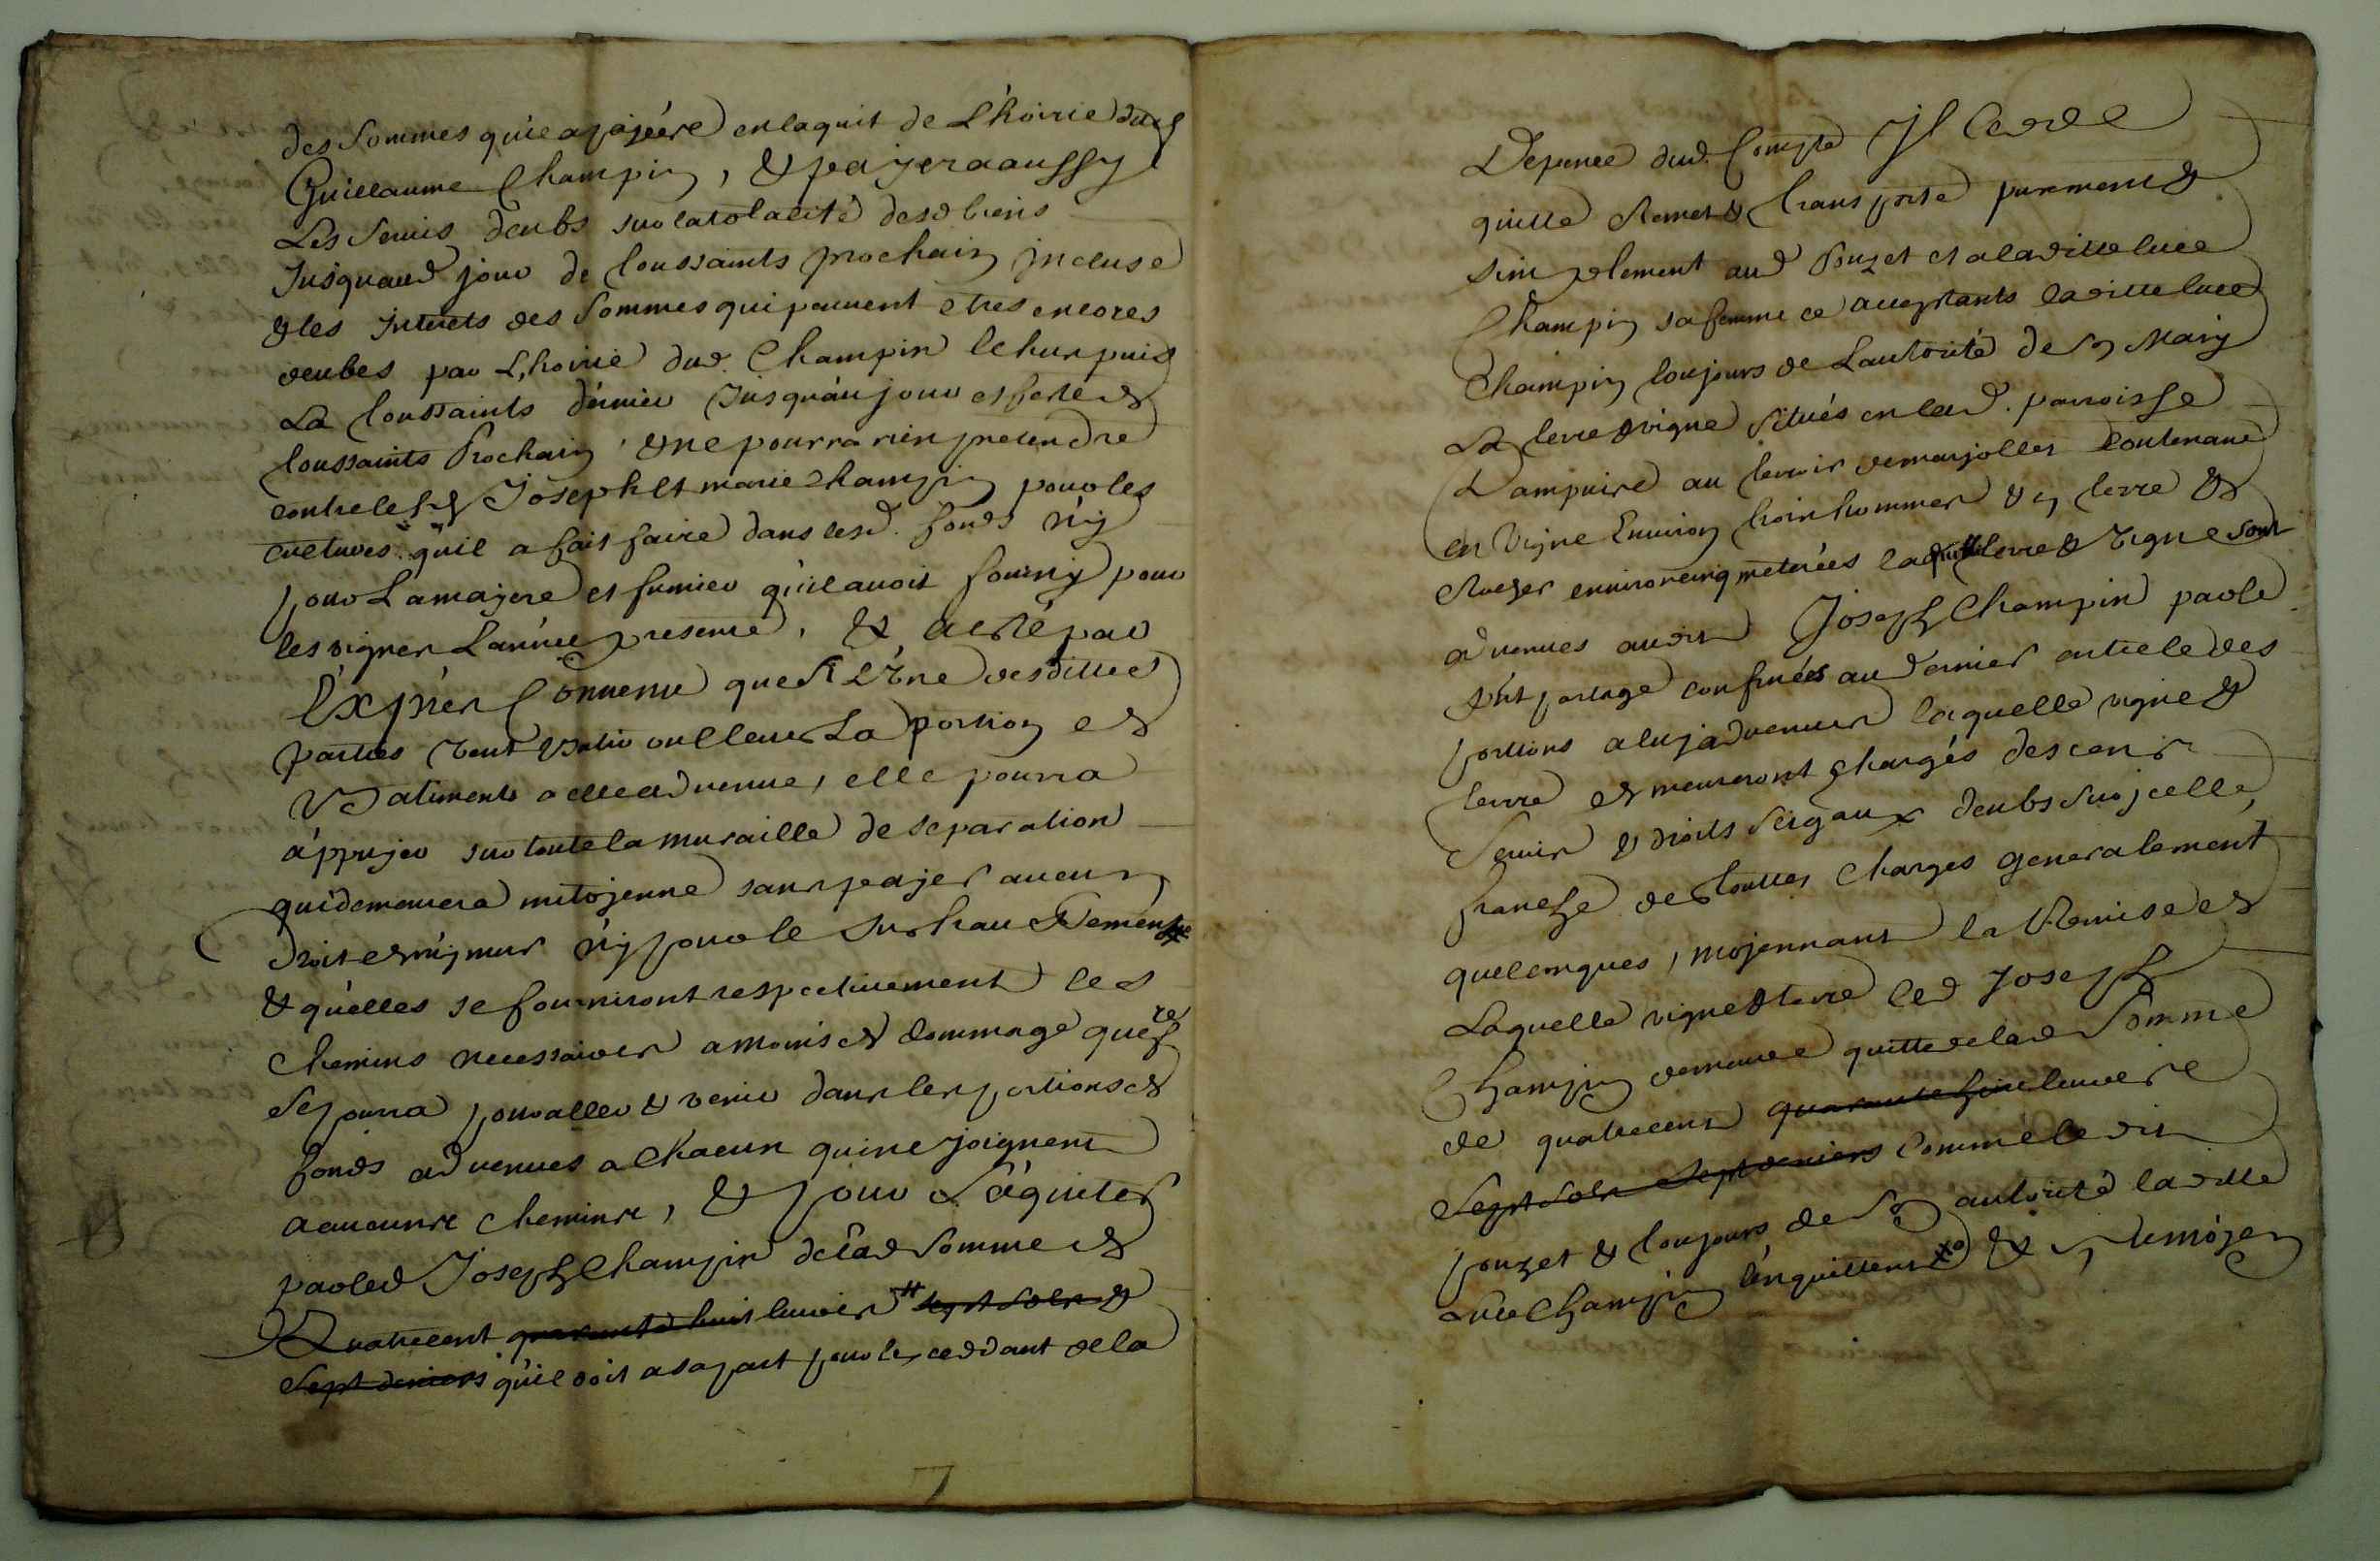 des Sommes quil a payéére en laquit de L'hoirie dud
Guillaume Champin, & payera aussy
Les Servis deubs sur la totalité desd biens
Jusquaud jour de toussaints prochain incluse
& les interets des Sommes qui peuvent etres encores
deubes par L'hoirie dud. Champin le tout puis
La toussaints dernier Jusqu'au jour et feste de
toussaints Prochain & ne pourra rien pretendre
contre lesd Joseph et marie Champin pour les
cultures qu'il a fait faire dans lesd. fonds n'y
pour L'amajere et fumier qu'il avoit fourny pour
les vignes L'année presente, & a esté par
Expres Convenu que si L'Une desdittes
parties veut batir ou ellever La portion de
Batiments a elle advenue, elle pourra
appuyer sur toute la muraille de separation
qui demeurera mitoyenne sans payer aucun
droit de my mur n'y pour le Surhaussement
& qu'elles se fourniront respectivement les
chemins necessaires a moins de dommage que f
Se pourra pour aller & venir dans les portions de
fonds advenues a Chacun qui ne joignent
a aucuns chemins, & pour S'aquiter
par led Joseph Champin de lad Somme de
Quatrecent quarante huit livres sept sols &
Sept deniers qu'il doit a sa part pour lexceddant de la
7
Depence dud. Compte Jl Cedde
quitte Remet & transporte purement &
simplement aud Pouzet et a laditte luce
Champin sa femme ce acceptants laditte luce
Champin toujours de Lautorité de son Mary
La terre & vigne Situés en lad. parroisse
Dampuire au terroir de marjolles Contenant
en Vigne Environ troix hommes & en terre &
environ cinq meterées laquelle terre & vigne sont
advenues audit Joseph Champin par le
sd'it partage confinées au dernier article des
portions a luy advenues laquelle vigne &
terre demeureront chargés des cens
Servis & droits Seigaux deubs sur jcelle,
franche de touttes Charges generalement
quelconques, moyennant la Remise de
Laquelle vigne & terre led Joseph
Champin demeure quitte de lad Somme
de quatrecent quarante huit livres
Sept Sols Sept deniers Comme ledit
pouzet & toujours de Son autorité laditte
Luce Champin l'en quittent & en le moyen